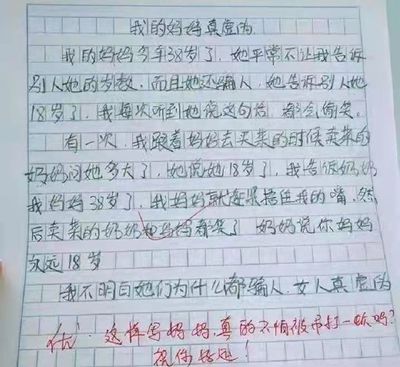 我的妈妈真虚伪
我的妈妈今年38岁了，她平常不让我告诉
别人她的岁数，而且她还骗人，她告诉别人她
18岁了，我每次听到她说这句话，都会偷笑。
有一次，我跟着妈妈去买菜的时候卖菜的
奶奶问她多大了，她说她18岁了，我告诉奶奶
我妈妈38岁了，我妈妈就赶紧捂住我的嘴，然
后卖菜的奶奶和妈妈都笑了 奶奶说你妈妈
永远18岁
我不明白她们为什么都骗人，女人真虚伪
优 这样写妈妈，真的不怕被吊打一顿吗？
祝你好运！